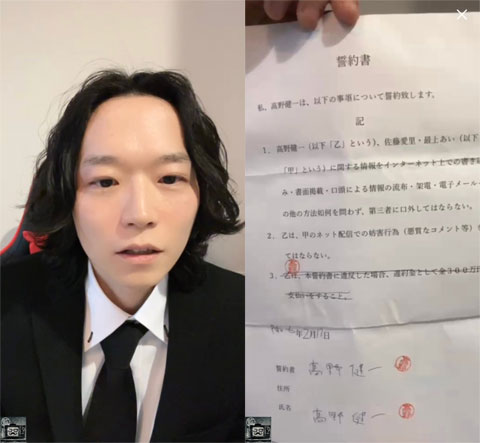 誓約書
私、高野健一は、以下の事項について誓約致します。
記
1. 高野健一(以下「乙」という)、佐藤愛里・最上あい(以下
「甲」という)に関する情報をインターネット上での書き
み・書面掲載・口頭による情報の流布・架電・電子メール
の他の方法如何を問わず、第三者に口外してはならない。
2. 乙は、甲のネット配信での妨害行為(悪質なコメント等)
てはならない。
3. 乙は、本誓約書に違反した場合、違約金として金300万
支払いをすること。
誓約書 高野健一
住所
氏名 高野健一